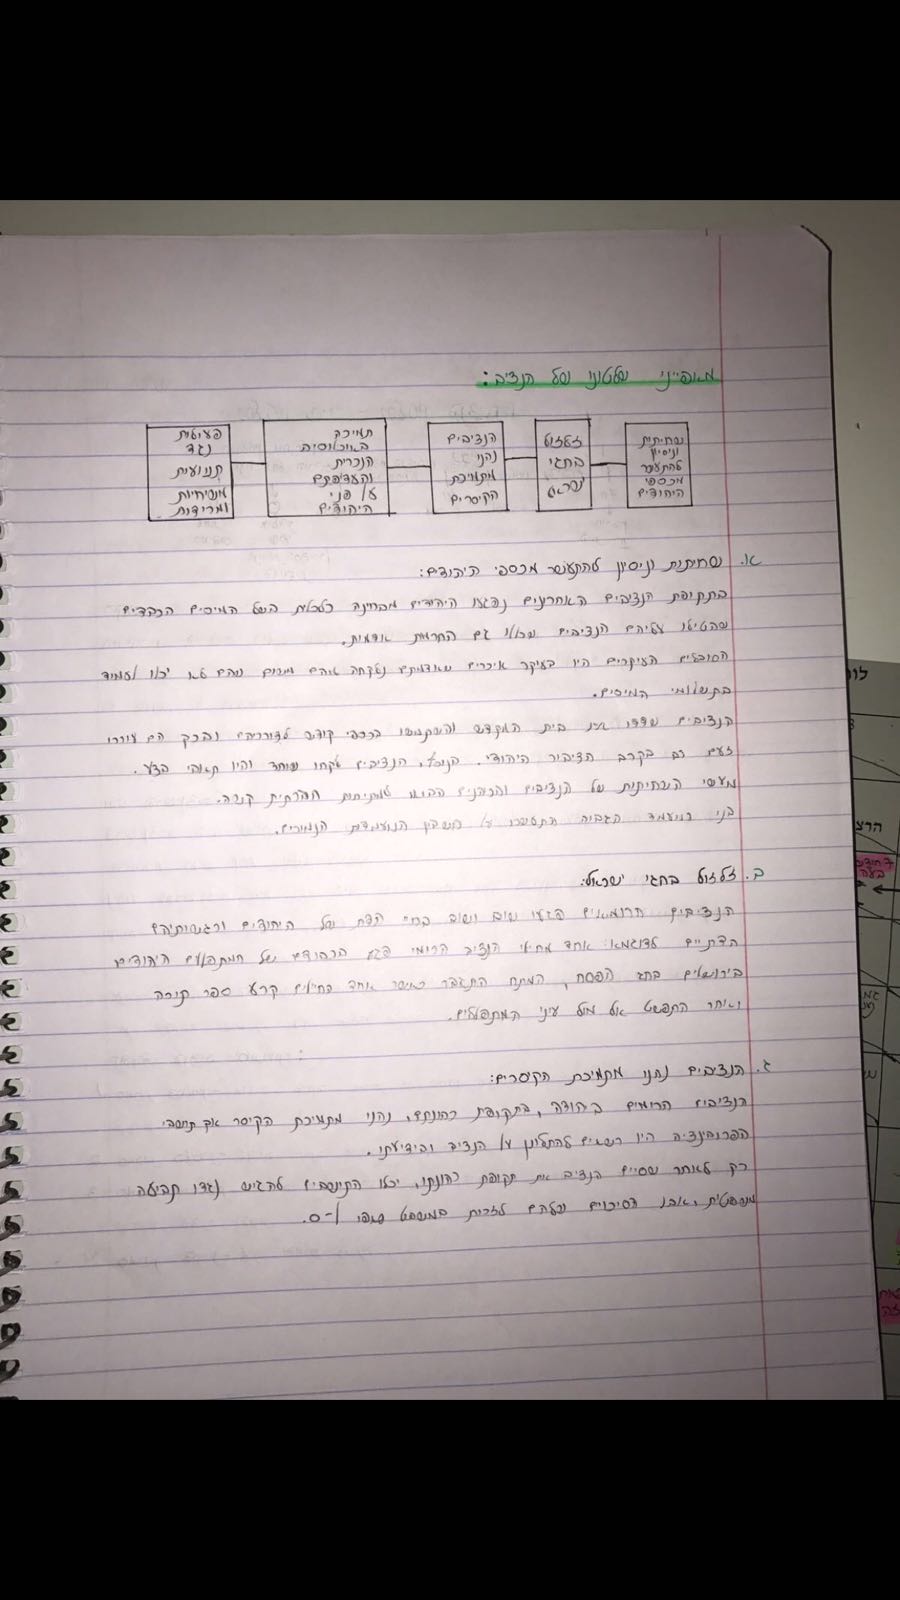 מאפייני שלטונו של הנציב:
שחיתות וניסיון להתעשר מכספי היהודים
זלזול בחגי ישראל
הנציבים נהנו מתמיכת הקיסרים
תמיכה באוכלוסיה הנכרית והעדפתם על פני היהודים
פעולות נגד תנועות משיחיות ומרידות
א. שחיתות וניסיון להתעשר מכספי היהודים:
בתקופת הנציבים האחרונים נפגעו היהודים מבחינה כלכלית בשל המיסים הכבדים
שהטילו עליהם הנציבים שכללו גם החרמת אדמות.
הסובלים העיקרים היו בעיקר איכרים שאדמתם נלקחה מהם משום שהם לא יכלו לעמוד
בתשלומי המיסים.
הנציבים שדדו את בית המקדש והשתמשו בכספי קודש לצורכיהם ובכך הם עוררו
זעם רב בקרב הציבור היהודי. בנוסף, הנציבים לקחו שוחד והיו תאווי בצע.
מעשי השחיתות של הנציבים והכוהנים הביאו למתיחות חברתית קשה.
בני המעמד הגבוה התעשרו על חשבון המעמדות הנמוכים.
ב. זלזול בחגי ישראל:
הנציבים הרומאים פגעו שוב ושוב בחיי הדת של היהודים וברגשותיהם
הדתיים לדוגמא: אחד מחיילי הנציב הרומי פגע בכבודם של המתפללים היהודים
בירושלים בחג הפסח, המתח התגבר כאשר אחד החיילים קרע ספר תורה
ואחר התפשט אל מול עיני המתפללים.
ג. הנציבים נהנו מתמיכת הקיסרים:
הנציבים הרומים ביהודה, בתקופת כהונתם, נהנו מתמיכת הקיסר אך תושבי
הפרובינציה היו רשאים להתלונן על הנציב ובידיעתו.
רק לאחר שסיים הנציב את תקופת כהונתו, יכלו התושבים להגיש נגדו תביעה
משפטית, אבל הסיכויים שלהם לזכות במשפט שאפו ל-0.
לוח
הרצ